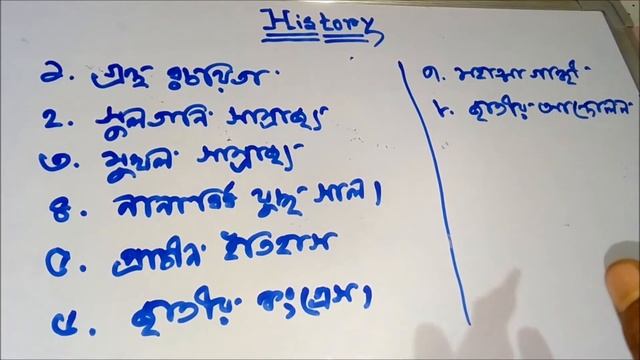 History
১. গ্রন্থ রচয়িতা
২. সুলতানি সাম্রাজ্য
৩. মুঘল সাম্রাজ্য
৪. নানাবিধ যুদ্ধ সাল।
৫. প্রাচীন ইতিহাস
৬. জাতীয় কংগ্রেস।
৭. মহাত্মা গান্ধী
৮. জাতীয় আন্দোলন